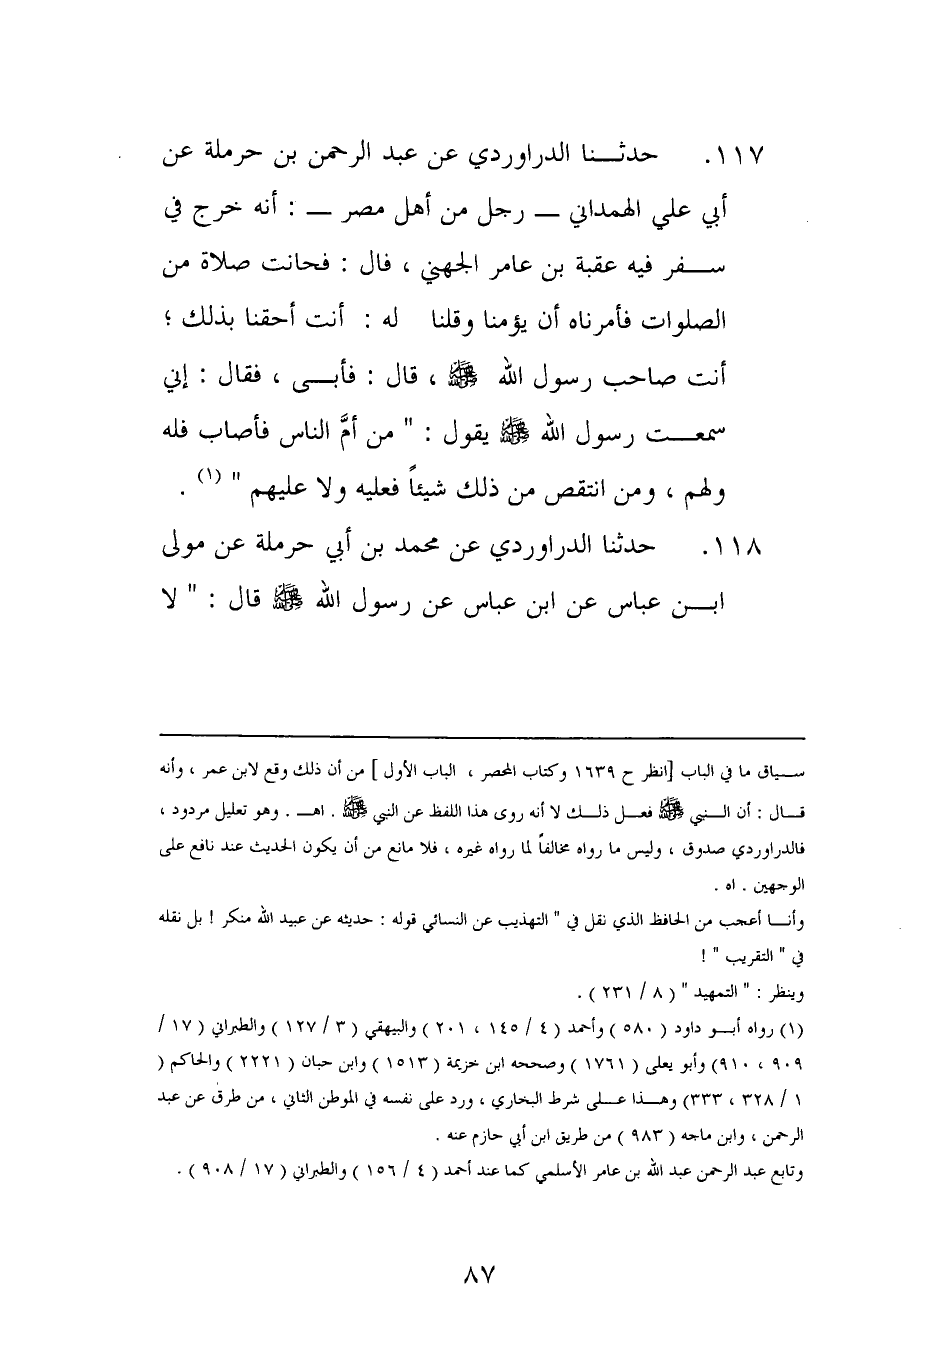 ١١٧. حدثـــنا الدراوردي عن عبد الرحمن بن حرملة عن
أبي علي الهمداني ــ رجل من أهل مصر ــ : أنه خرج في
ســـفر فيه عقبة بن عامر الجهني ، قال : فحانت صلاة من
الصلوات فأمرناه أن يؤمنا وقلنا له : أنت أحقنا بذلك ؛
أنت صاحب رسول الله ﷺ ، قال : فأبـــى ، فقال : إني
سمعـــت رسول الله ﷺ يقول : " من أمَّ الناس فأصاب فله
ولهم ، ومن انتقص من ذلك شيئاً فعليه ولا عليهم " (١) .
١١٨. حدثنا الدراوردي عن محمد بن أبي حرملة عن مولى
ابـــن عباس عن ابن عباس عن رسول الله ﷺ قال : " لا
ســياق ما في الباب [انظر ح ١٦٣٩ وكتاب المحصر ، الباب الأول ] من أن ذلك وقع لابن عمر ، وأنه
قـــال : أن الـــنبي ﷺ فعـــل ذلـــك لا أنه روى هذا اللفظ عن النبي ﷺ . اهـــ . وهو تعليل مردود ،
فالدراوردي صدوق ، وليس ما رواه مخالفاً لما رواه غيره ، فلا مانع من أن يكون الحديث عند نافع على
الوجهين . اه .
وأنـــا أعجب من الحافظ الذي نقل في " التهذيب عن النسائي قوله : حديثه عن عبيد الله منكر ! بل نقله
في " التقريب " !
وينظر : " التمهيد " ( ٨ / ٢٣١ ) .
(١) رواه أبـــو داود ( ٥٨٠ ) وأحمد ( ٤ / ١٤٥ ، ٢٠١ ) والبيهقي ( ٣ / ١٢٧ ) والطبراني ( ١٧ /
٩٠٩ ، ٩١٠) وأبو يعلى ( ١٧٦١ ) وصححه ابن خزيمة ( ١٥١٣ ) وابن حبان ( ٢٢٢١ ) والحاكم (
١ / ٣٢٨ ، ٣٣٣) وهـــذا عـــلى شرط البخاري ، ورد على نفسه في الموطن الثاني ، من طرق عن عبد
الرحمن ، وابن ماجه ( ٩٨٣ ) من طريق ابن أبي حازم عنه .
وتابع عبد الرحمن عبد الله بن عامر الأسلمي كما عند أحمد ( ٤ / ١٥٦ ) والطبراني ( ١٧ / ٩٠٨ ) .
٨٧